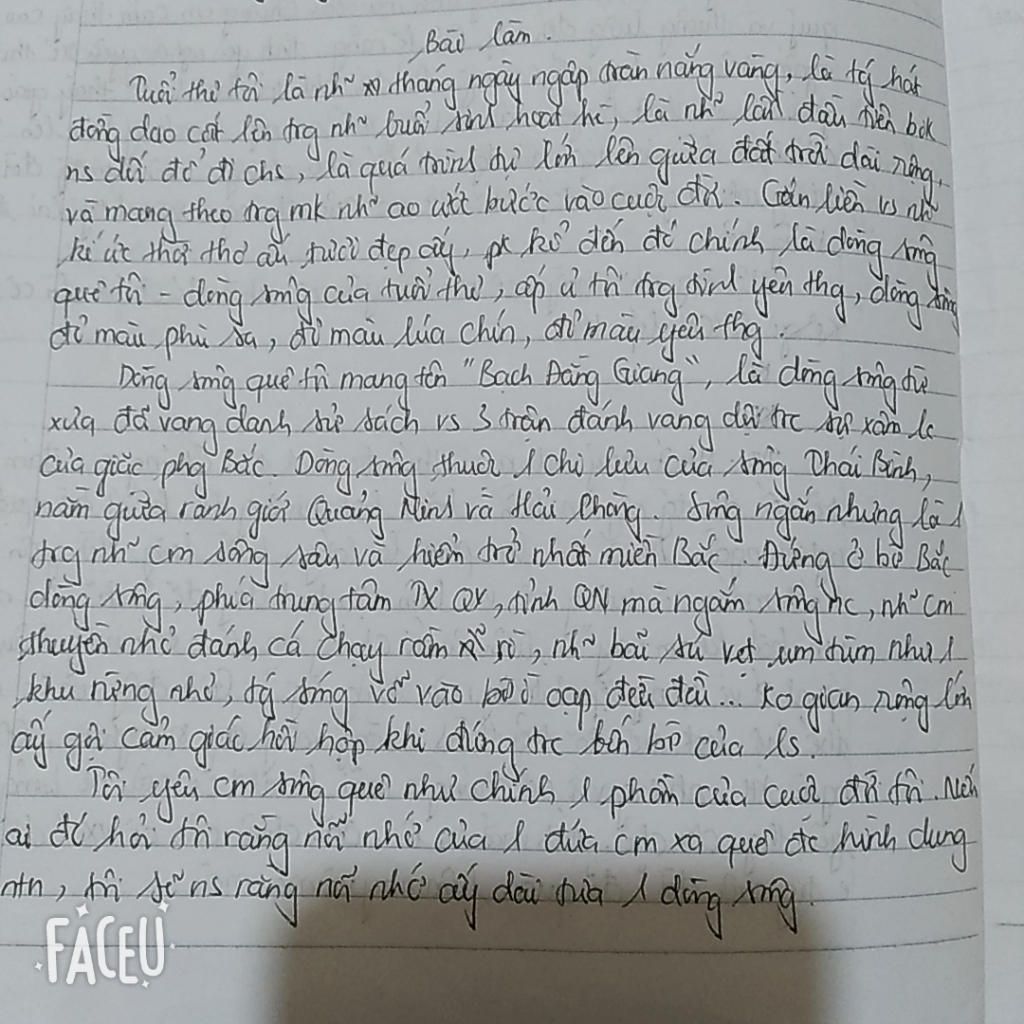 Bài làm.
Tuổi thơ tôi là nh~ thángngày ngập tràn nắng vàng, là tg hát
đồng dao cất lên trg nh~ buổi sinh hoạt hè, là nh~ lần đầu tiên bík
ns dối để đi chs, là quá trình tự lớn lên giữa đất trời dài rộng,
và mang theo trg mk nh~ ao ước bước vào cuộc đời. Gắn liền vs nh~
kí ức thời thơ ấu tươi đẹp ấy, pk kể đến đó chính là dòng sông
quê tôi - dòng sông của tuổi thơ, ấp ủ tôi trg tình yên thg, dòng sông
đỏ màu phù sa, đỏ màu lúa chín, đỏ màu yêu thg.
Dòng sông quê tôi mang tên "Bạch Đằng Giang", là dòng sông từ
xưa đã vang danh sử sách vs 3 trận đánh vang dội trc sự xâm lc
của giặc phg Bắc. Dòng sông thuộc 1 chi lưu của sông Thái Bình,
nằm giữa ranh giới Quảng Ninh và Hải Phòng. Sông ngắn nhưng là 1
trg nh~ cm sông sâu và hiểm trở nhất miền Bắc. Đứng ở bờ Bắc
dòng sông, phía trung tâm TX QY, tỉnh QN mà ngắm sông nc, nh~ cm
thuyền nhỏ đánh cá chạy rầm rì, nh~ bãi sú vẹt um tùm như 1
khu rừng nhỏ, tg sóng vỗ vào bờ ì oạp đều đều... Ko gian rộng lớn
ấy gợi cảm giác hồi hộp khi đứng trc bến bờ của ls.
Tôi yêu cm sông quê như chính 1 phần của cuộc đời tôi. Nếu
ai đó hỏi tôi rằng nỗi nhớ của 1 đứa cm xa quê đc hình dung
ntn, tôi sẽ ns rằng nỗi nhớ ấy dài tựa 1 dòng sông.
FACEU